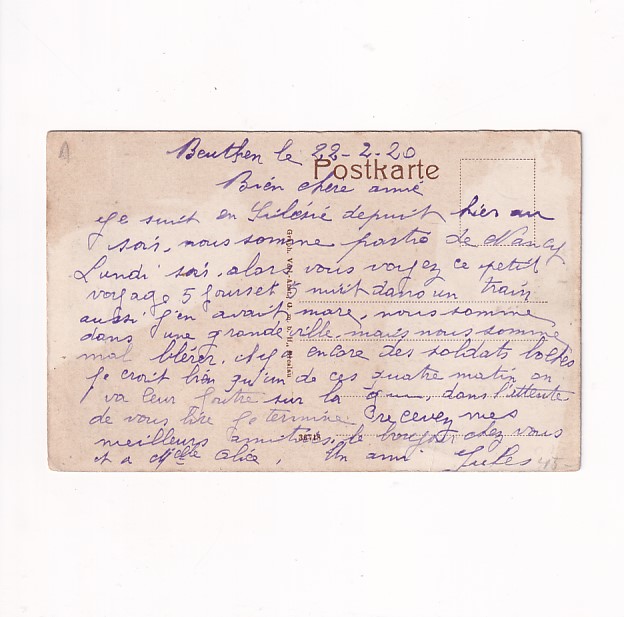 Beuthen le 22-2-20
Postkarte
Bien chere amie
Je suit en Silésie depuit hier au
soir, nous somme partis de Nancy
Lundi soir, alors vous voyez ce petit
voyage 5 jours et 5 nuit dans un train
aussi j'en avait mare, nous somme
dans une grande ville, mais nous somme
mal, il y a encore des soldats boches
Je croit bien qu'un de ces quatre matin on
va leur foutre sur la, dans l'attente
de vous lire Je termine. recevez mes
meilleurs amitiés, le bonjour chez vous
et a Melle Alice, Un ami Jules
45-